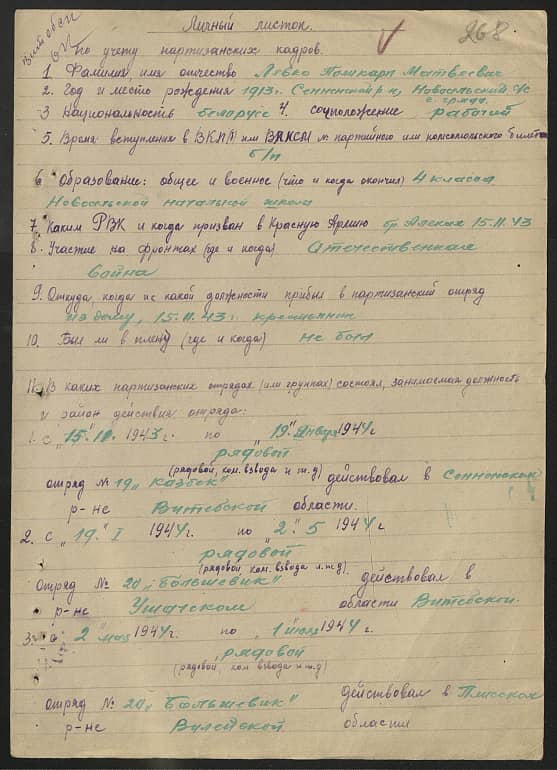 Витебск
Личный листок.
268
по учету партизанских кадров.
1. Фамилия, имя отчество Лявко Поликарп Матвеевич
2. Год и место рождения 1913 г. Сенненский р-н, Новосельский с/с
3 Национальность беларусс 4. соцположение рабочий
5. Время вступления в ВКП(б) или ВЛКСМ № партийного или комсомольского билета
б/п
6. Образование: общее и военное (что и когда окончил) 4 класса
Новосельской начальной школы
7. Каким РВК и когда призван в Красную Армию бр. Алексея 15.11.43
8. Участие на фронтах (где и когда) Отечественная
война
9. Откуда, когда и с какой должности прибыл в партизанский отряд
из дому, 15.11.43 г. крестьянин
10. Был ли в плену (где и когда) не был
11. В каких партизанских отрядах (или группах) состоял, занимаемая должность
и район действия отряда:
1. с "15" 11. 1943 г. по "19" января 1944 г
рядовой
(рядовой, ком. взвода и т.д)
отряд № 19 "Казбек" действовал в Сенненском
р-не Витебской области.
2. с "19" I 1944 г. по "2" 5 1944 г
рядовой
(рядовой ком. взвода и т.д)
отряд № 20 "Большевик" действовал в
р-не Ушачском области Витебской.
3. с 2 мая 1944 г. по "1 июля 1944 г.
рядовой
(рядовой, ком взвода и т.д)
отряд № 20 "Большевик" действовал в Плисском
р-не Вилейской области